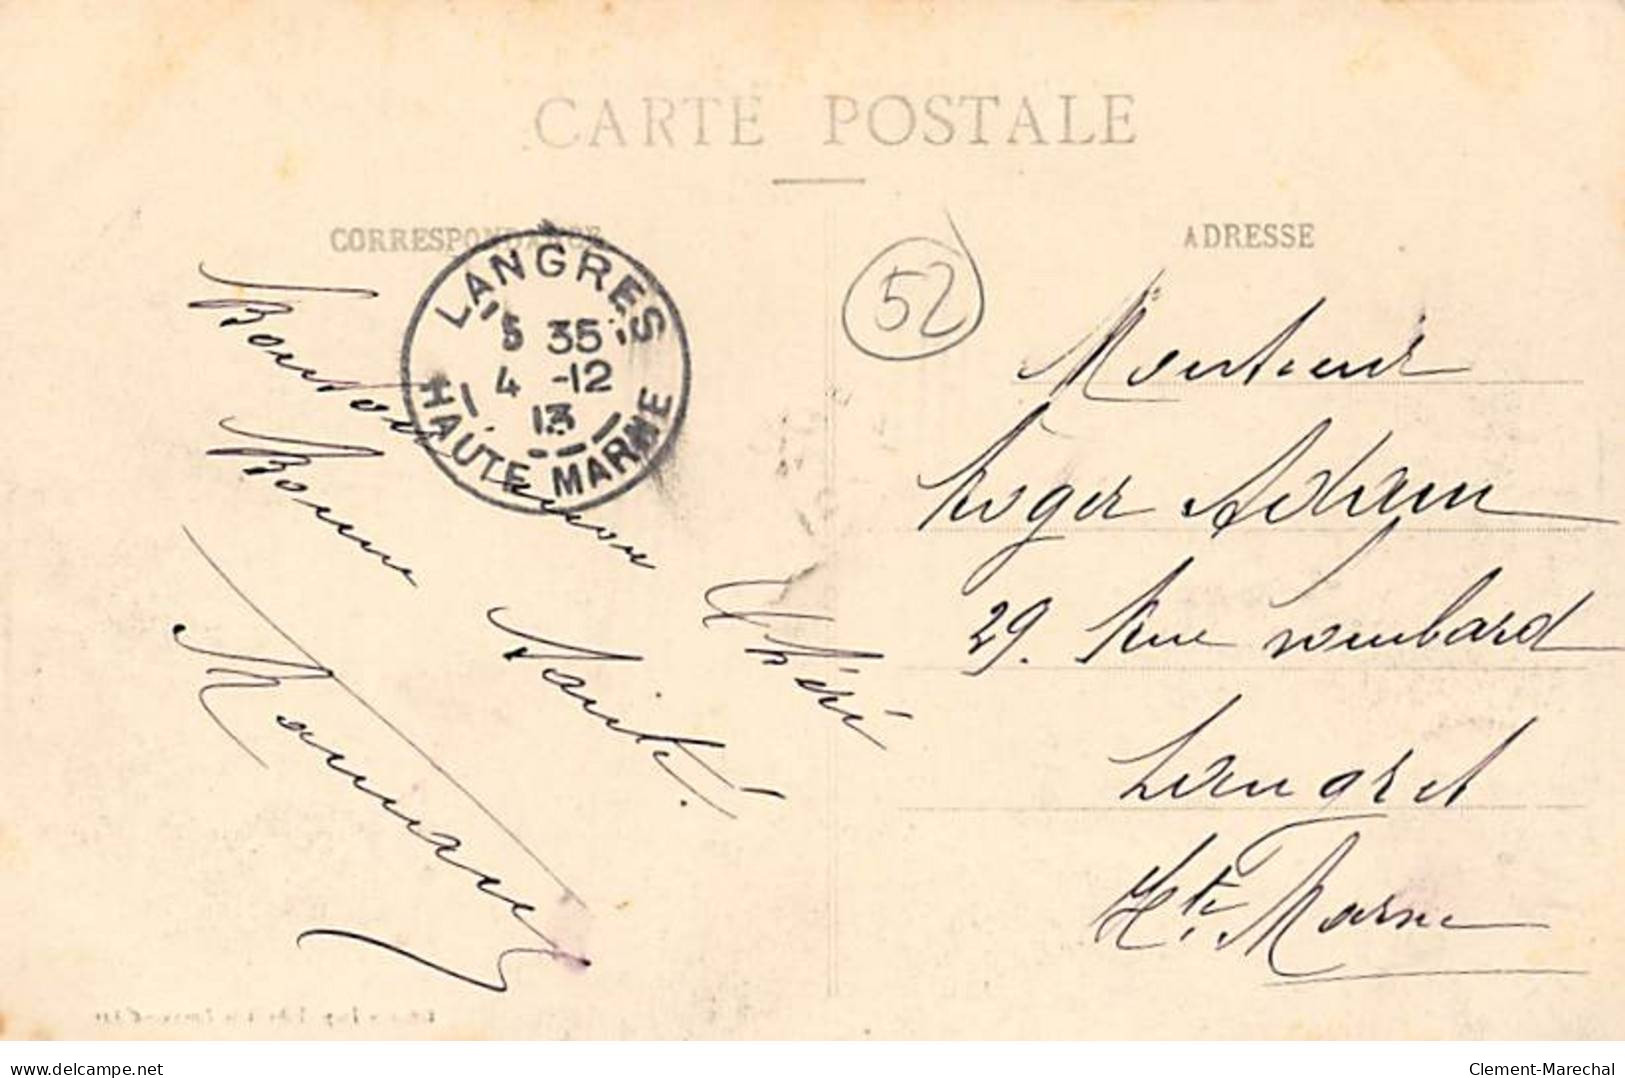 CARTE POSTALE
CORRESPONDANCE
ADRESSE
LANGRES
5 35
4 -12
13
HAUTE MARNE
52
Bonjour mon
Chéri
Bonne Santé.
Monsieur
Roger Adam
29. Rue Lombard
Langres
Hte Marne
www.delcampe.net
Clement-Marechal